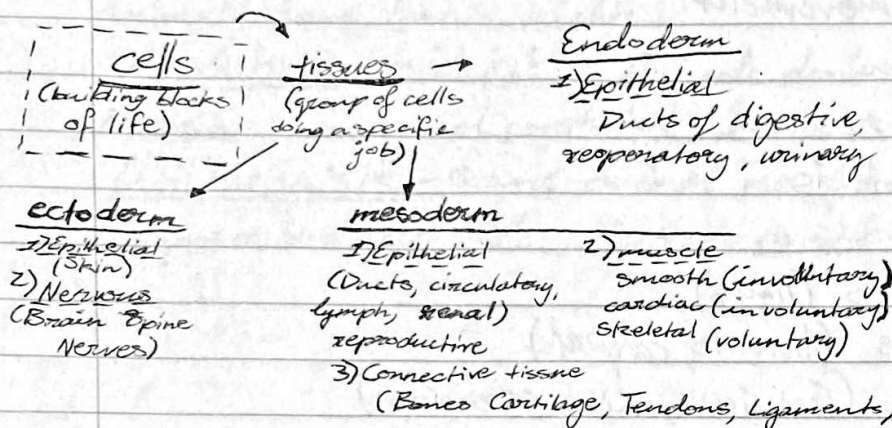 cells
(building blocks
of life)
tissues
(group of cells
doing a specific
job)
Endoderm
1) Epithelial
Ducts of digestive,
resperatory, urinary
ectoderm
1) Epithelial
(Skin)
2) Nervous
(Brain Spine
Nerves)
mesoderm
1) Epithelial
(Ducts, circulatory,
lymph, renal)
reproductive
2) muscle
smooth (involuntary)
cardiac (involuntary)
skeletal (voluntary)
3) Connective tissue
(Bones Cartilage, Tendons, Ligaments,